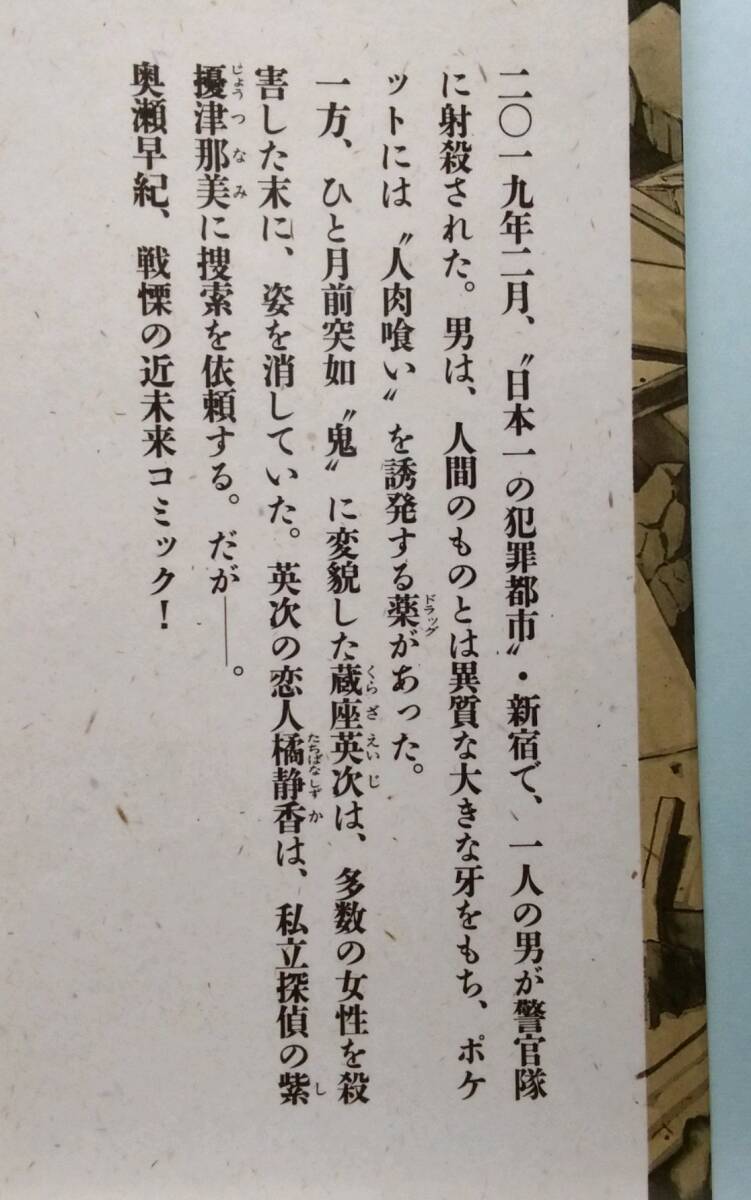 二〇一九年二月、〝日本一の犯罪都市〟・新宿で、一人の男が警官隊
に射殺された。男は、人間のものとは異質な大きな牙をもち、ポケ
ットには〝人肉喰い〟を誘発する薬があった。
ドラッグ
一方、ひと月前突如〝鬼〟に変貌した蔵座英次は、多数の女性を殺
くらざえいじ
害した末に、姿を消していた。英次の恋人橘静香は、私立探偵の紫
たちばなしずか
し
擾津那美に捜索を依頼する。だが――。
じょうつなみ
奥瀬早紀、戦慄の近未来コミック!